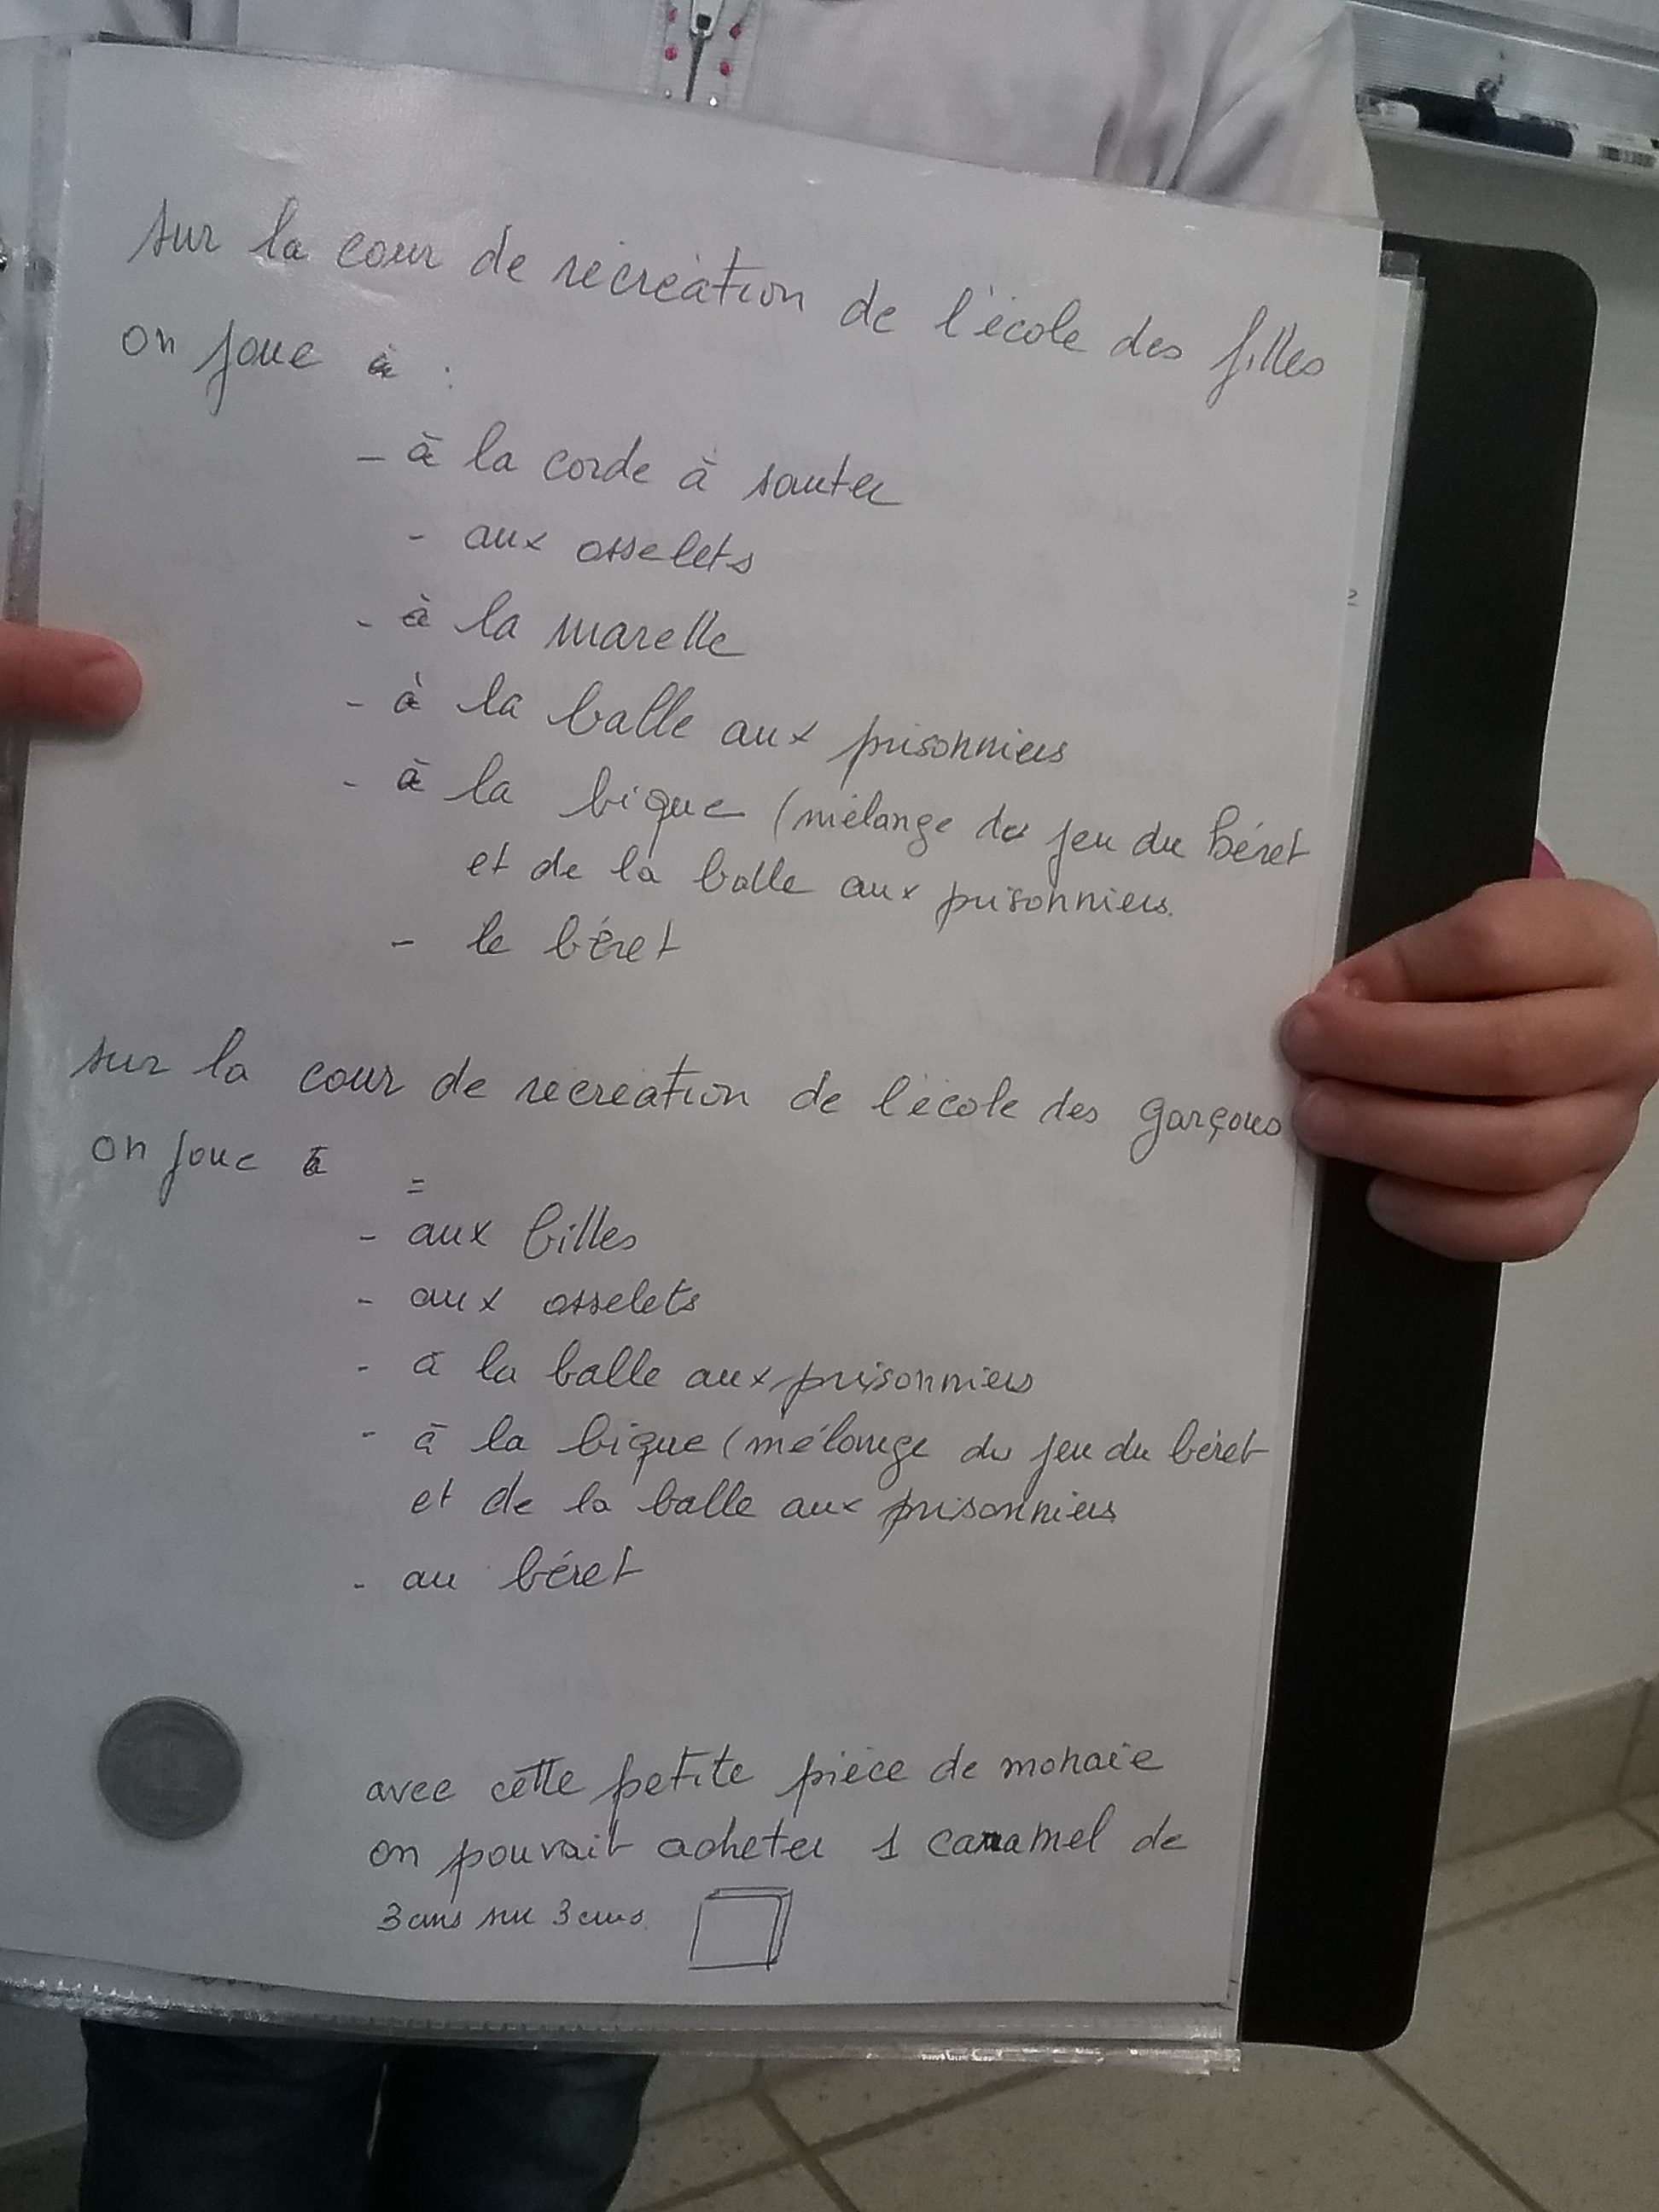 sur la cour de récréation de l'école des filles
on joue à :
- à la corde à sauter
- aux osselets
- à la marelle
- à la balle aux prisonniers
- à la bique (mélange du jeu du béret
et de la balle aux prisonniers.
- le béret
sur la cour de récréation de l'école des garçons
on joue à =
- aux billes
- aux osselets
- à la balle aux prisonniers
- à la bique (mélange du jeu du béret
et de la balle aux prisonniers
- au béret
avec cette petite pièce de monaie
on pouvait acheter 1 caramel de
3 cms sur 3 cms.